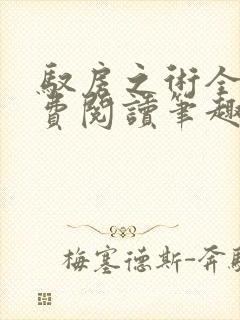 馭房之術全
費閱讀筆趣
梅塞德斯-奔馳